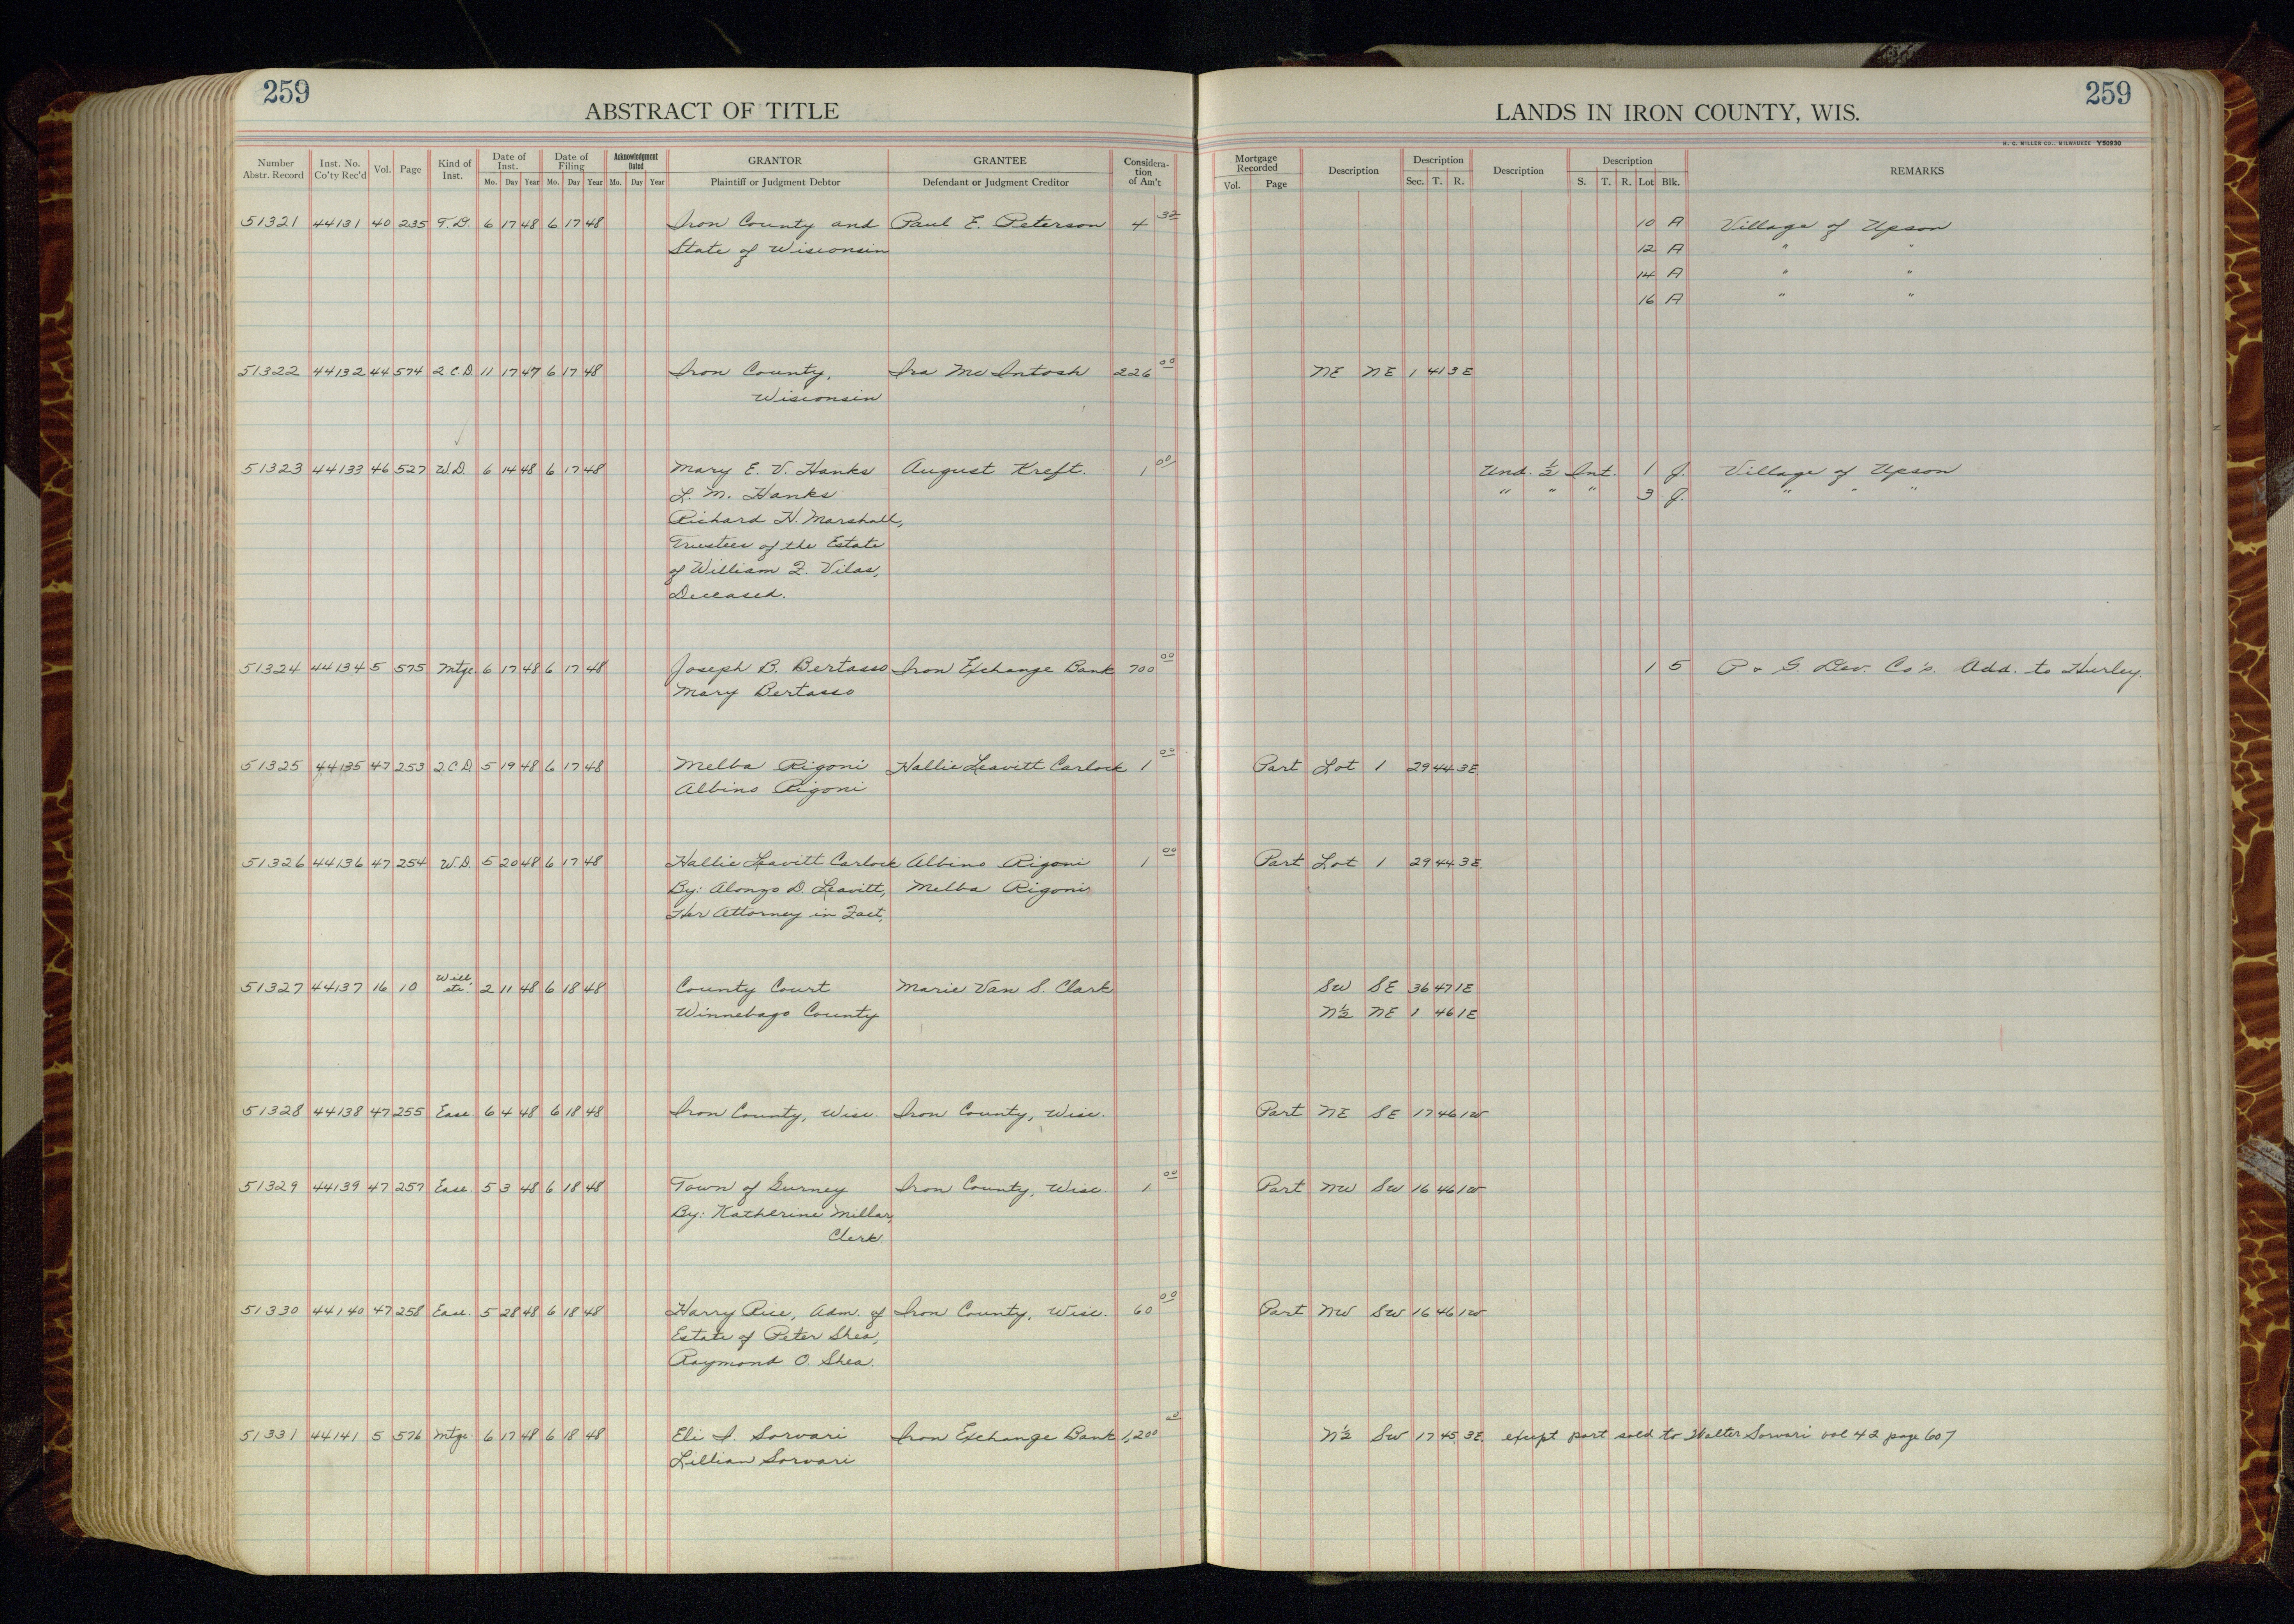 259
259
ABSTRACT OF TITLE
LANDS IN IRON COUNTY, WIS.
H. C. MILLER CO., MILWAUKEE Y50930
Number Abstr. Record Inst. No. Co'ty Rec'd Vol. Page Kind of Inst. Date of Inst. Mo. Day Year Date of Filing Mo. Day Year Acknowledgment Dated Mo. Day Year GRANTOR Plaintiff or Judgment Debtor GRANTEE Defendant or Judgment Creditor Considera-tion of Am't Mortgage Recorded Vol. Page Description Description Sec. T. R. Description Description S. T. R. Lot Blk. REMARKS
51321 44131 40 235 T.D. 6 17 48 6 17 48 Iron County and Paul E. Peterson 4 32 10 A Village of Upson
State of Wisconsin 12 A " "
14 A " "
16 A " "
51322 44132 44 574 2.C.D. 11 17 47 6 17 48 Iron County, Ira McIntosh 226 00 NE NE 1 41 3E
Wisconsin
51323 44133 46 527 W.D. 6 14 48 6 17 48 Mary E. V. Hanks August Kreft. 1 00 Und. ½ Int. 1 J. Village of Upson
L. M. Hanks " " " 3 J. " " "
Richard H. Marshall,
Trustees of the Estate
of William F. Vilas,
Deceased.
51324 44134 5 575 Mtge 6 17 48 6 17 48 Joseph B. Bertasso Iron Exchange Bank 700 00 1 5 P & G. Dev. Co's. Add. to Hurley.
Mary Bertasso
51325 44135 47 253 2.C.D. 5 19 48 6 17 48 Melba Rigoni Hallie Leavitt Carlock 1 00 Part Lot 1 29 44 3E
Albino Rigoni
51326 44136 47 254 W.D. 5 20 48 6 17 48 Hallie Leavitt Carlock Albino Rigoni 1 00 Part Lot 1 29 44 3E
By: Alonzo D. Leavitt, Melba Rigoni
Her Attorney in Fact,
51327 44137 16 10 Will, etc. 2 11 48 6 18 48 County Court Marie Van S. Clark SW SE 36 47 1E
Winnebago County N½ NE 1 46 1E
51328 44138 47 255 Ease. 6 4 48 6 18 48 Iron County, Wisc. Iron County, Wisc. Part NE SE 17 46 1W
51329 44139 47 257 Ease. 5 3 48 6 18 48 Town of Gurney Iron County, Wisc. 1 00 Part NW SW 16 46 1W
By: Katherine Millar,
Clerk.
51330 44140 47 258 Ease. 5 28 48 6 18 48 Harry Rice, Adm. of Iron County, Wisc. 60 00 Part NW SW 16 46 1W
Estate of Peter Shea,
Raymond O. Shea.
51331 44141 5 576 Mtge. 6 17 48 6 18 48 Eli I. Sorvari Iron Exchange Bank 1,200 00 N½ SW 17 45 3E except part sold to Walter Sorvari vol 42 page 607
Lillian Sorvari